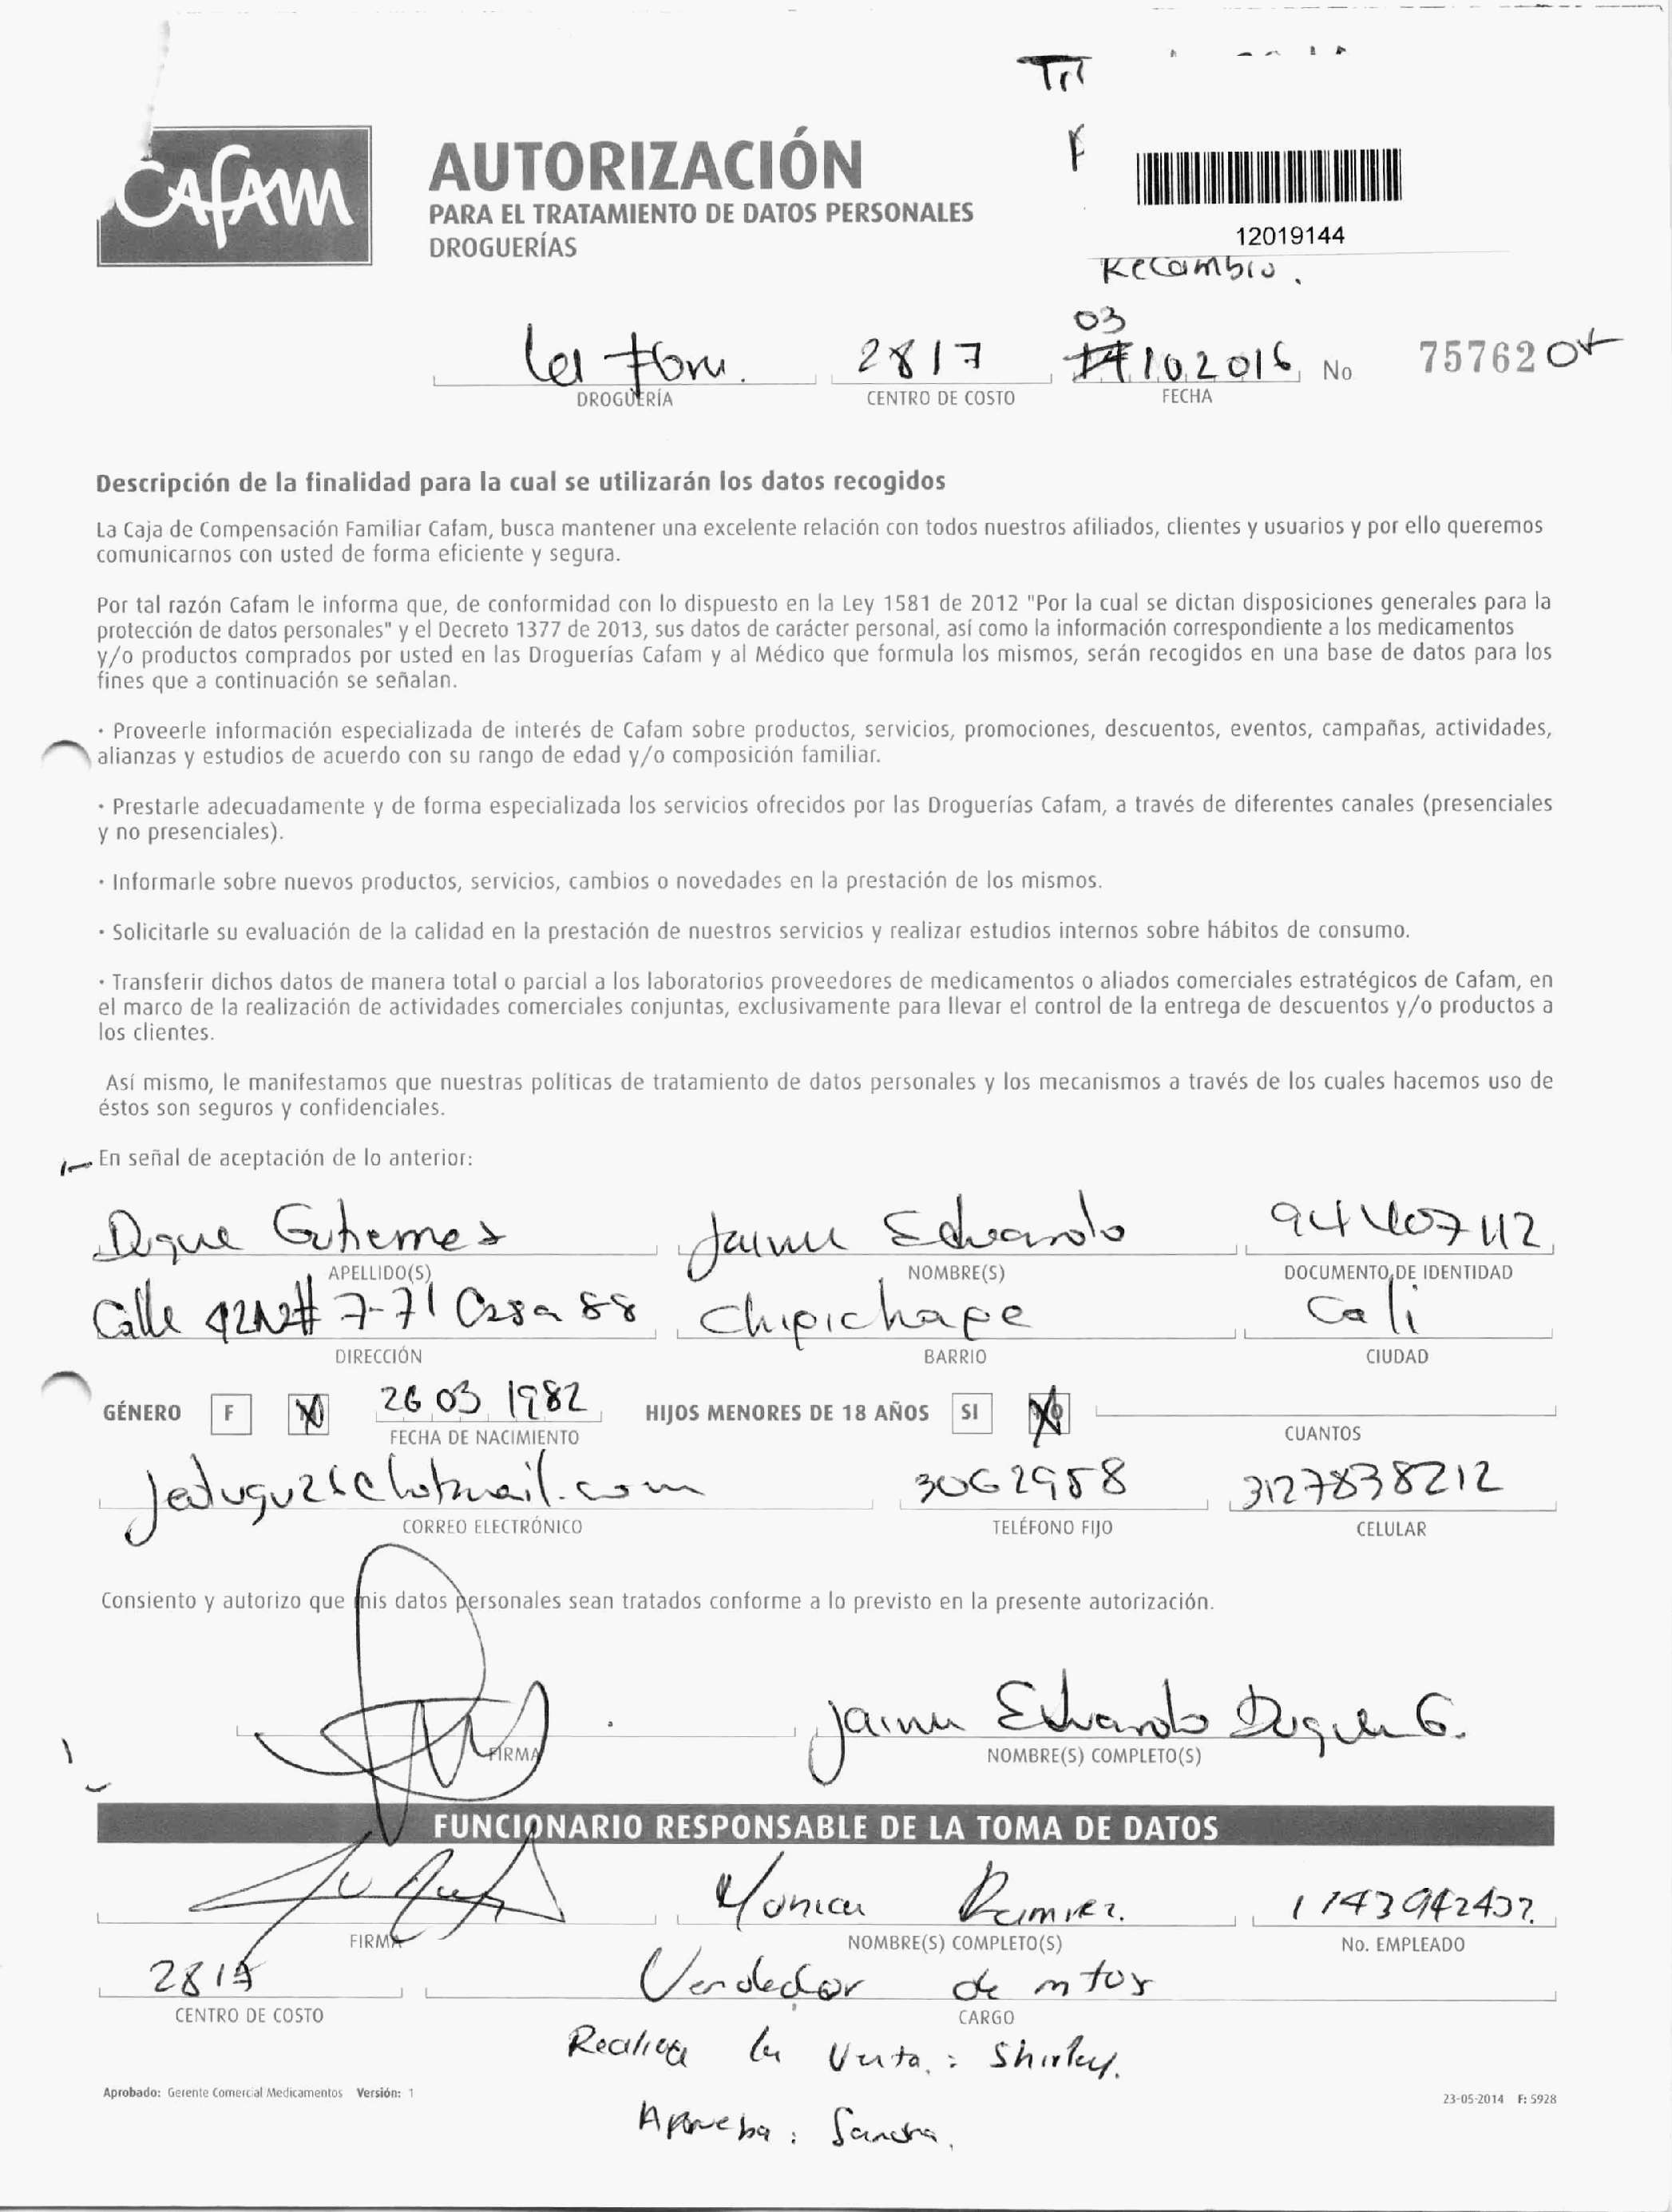 CAFAM
AUTORIZACIÓN
PARA EL TRATAMIENTO DE DATOS PERSONALES
DROGUERÍAS
12019144
Recambio.
03
2817 102016 No 75762
DROGUERÍA CENTRO DE COSTO FECHA
Descripción de la finalidad para la cual se utilizarán los datos recogidos
La Caja de Compensación Familiar Cafam, busca mantener una excelente relación con todos nuestros afiliados, clientes y usuarios y por ello queremos
comunicarnos con usted de forma eficiente y segura.
Por tal razón Cafam le informa que, de conformidad con lo dispuesto en la Ley 1581 de 2012 "Por la cual se dictan disposiciones generales para la
protección de datos personales" y el Decreto 1377 de 2013, sus datos de carácter personal, así como la información correspondiente a los medicamentos
y/o productos comprados por usted en las Droguerías Cafam y al Médico que formula los mismos, serán recogidos en una base de datos para los
fines que a continuación se señalan.
· Proveerle información especializada de interés de Cafam sobre productos, servicios, promociones, descuentos, eventos, campañas, actividades,
alianzas y estudios de acuerdo con su rango de edad y/o composición familiar.
· Prestarle adecuadamente y de forma especializada los servicios ofrecidos por las Droguerías Cafam, a través de diferentes canales (presenciales
y no presenciales).
· Informarle sobre nuevos productos, servicios, cambios o novedades en la prestación de los mismos.
· Solicitarle su evaluación de la calidad en la prestación de nuestros servicios y realizar estudios internos sobre hábitos de consumo.
· Transferir dichos datos de manera total o parcial a los laboratorios proveedores de medicamentos o aliados comerciales estratégicos de Cafam, en
el marco de la realización de actividades comerciales conjuntas, exclusivamente para llevar el control de la entrega de descuentos y/o productos a
los clientes.
Así mismo, le manifestamos que nuestras políticas de tratamiento de datos personales y los mecanismos a través de los cuales hacemos uso de
éstos son seguros y confidenciales.
En señal de aceptación de lo anterior:
Duque Gutierrez Jaime Eduardo
APELLIDO(S) NOMBRE(S) DOCUMENTO DE IDENTIDAD
Calle 42N# 7-71 Casa 88 Chipichape Cali
DIRECCIÓN BARRIO CIUDAD
GÉNERO F 26 03 1982 HIJOS MENORES DE 18 AÑOS SI
FECHA DE NACIMIENTO CUANTOS
3062958 3127838212
CORREO ELECTRÓNICO TELÉFONO FIJO CELULAR
Consiento y autorizo que mis datos personales sean tratados conforme a lo previsto en la presente autorización.
Jaime Eduardo Duque G.
FIRMA NOMBRE(S) COMPLETO(S)
FUNCIONARIO RESPONSABLE DE LA TOMA DE DATOS
Monica Ramirez. 1143942437
FIRMA NOMBRE(S) COMPLETO(S) No. EMPLEADO
2817 Vendedor de mtos
CENTRO DE COSTO CARGO
Realiza la Venta: Shirley.
Aprobado: Gerente Comercial Medicamentos Versión: 1 23-05-2014 F: 5928
Aprueba: Sandra.